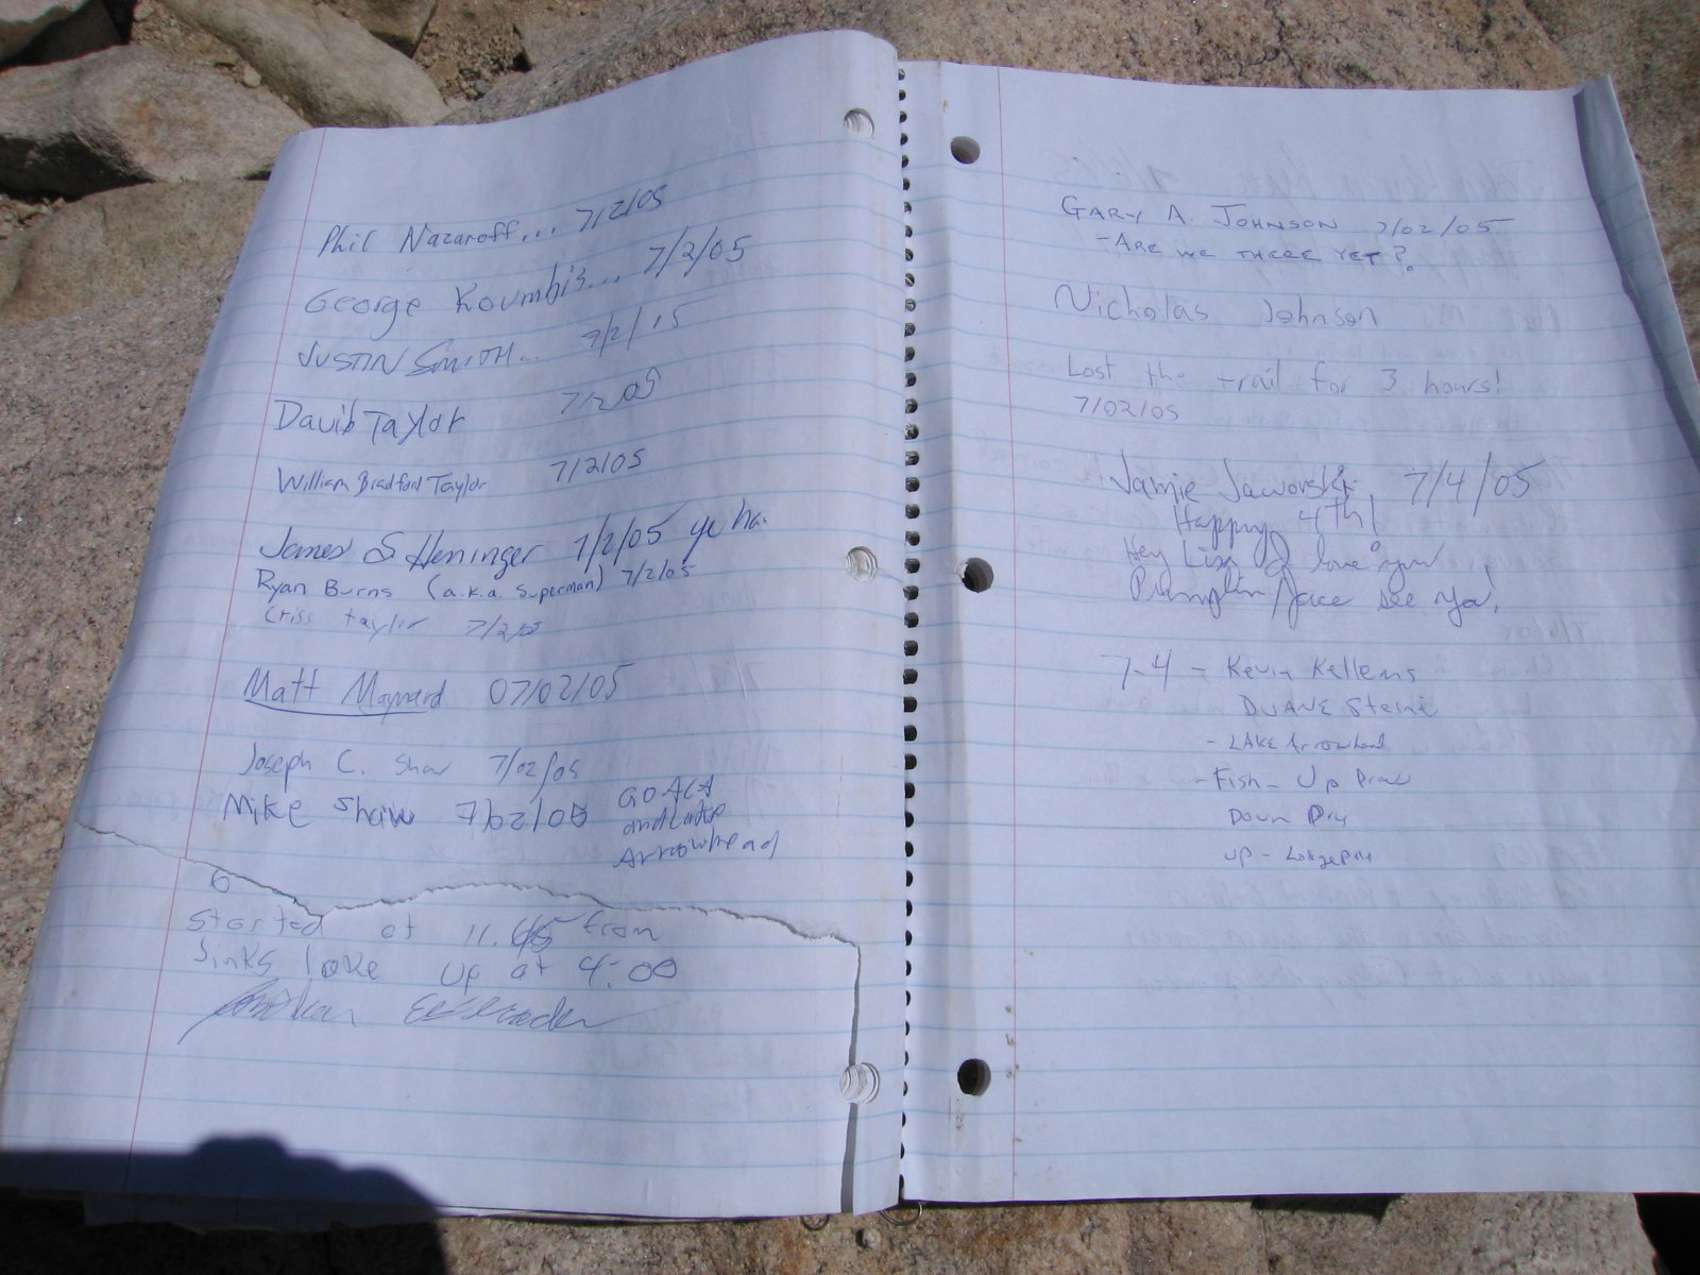 Phil Nazaroff... 7/2/05
George Koumbis... 7/2/05
JUSTIN SMITH... 7/2/15
David Taylor 7/2/05
William Bradford Taylor 7/2/05
James S Heninger 7/2/05 ye ha.
Ryan Burns (a.k.a. Superman) 7/2/05
Criss taylor 7/2/05
Matt Maynard 07/02/05
Joseph C. Shaw 7/02/05
Mike Shaw 7/02/05 GO ACA
and Lake
Arrowhead
Started at 11.45 from
Jinks lake up at 4:00
GARY A. JOHNSON 7/02/05
-ARE WE THERE YET?
Nicholas Johnson
Lost the trail for 3 hours!
7/02/05
Jamie Jaworski 7/4/05
Happy 4th!
Hey Lisa I love you
Pumpkin face see ya!
7-4 - Kevin Kellems
DUANE Steini
- LAKE Arrowhead
- Fish- Up
Down Dry
up - Lodgepole